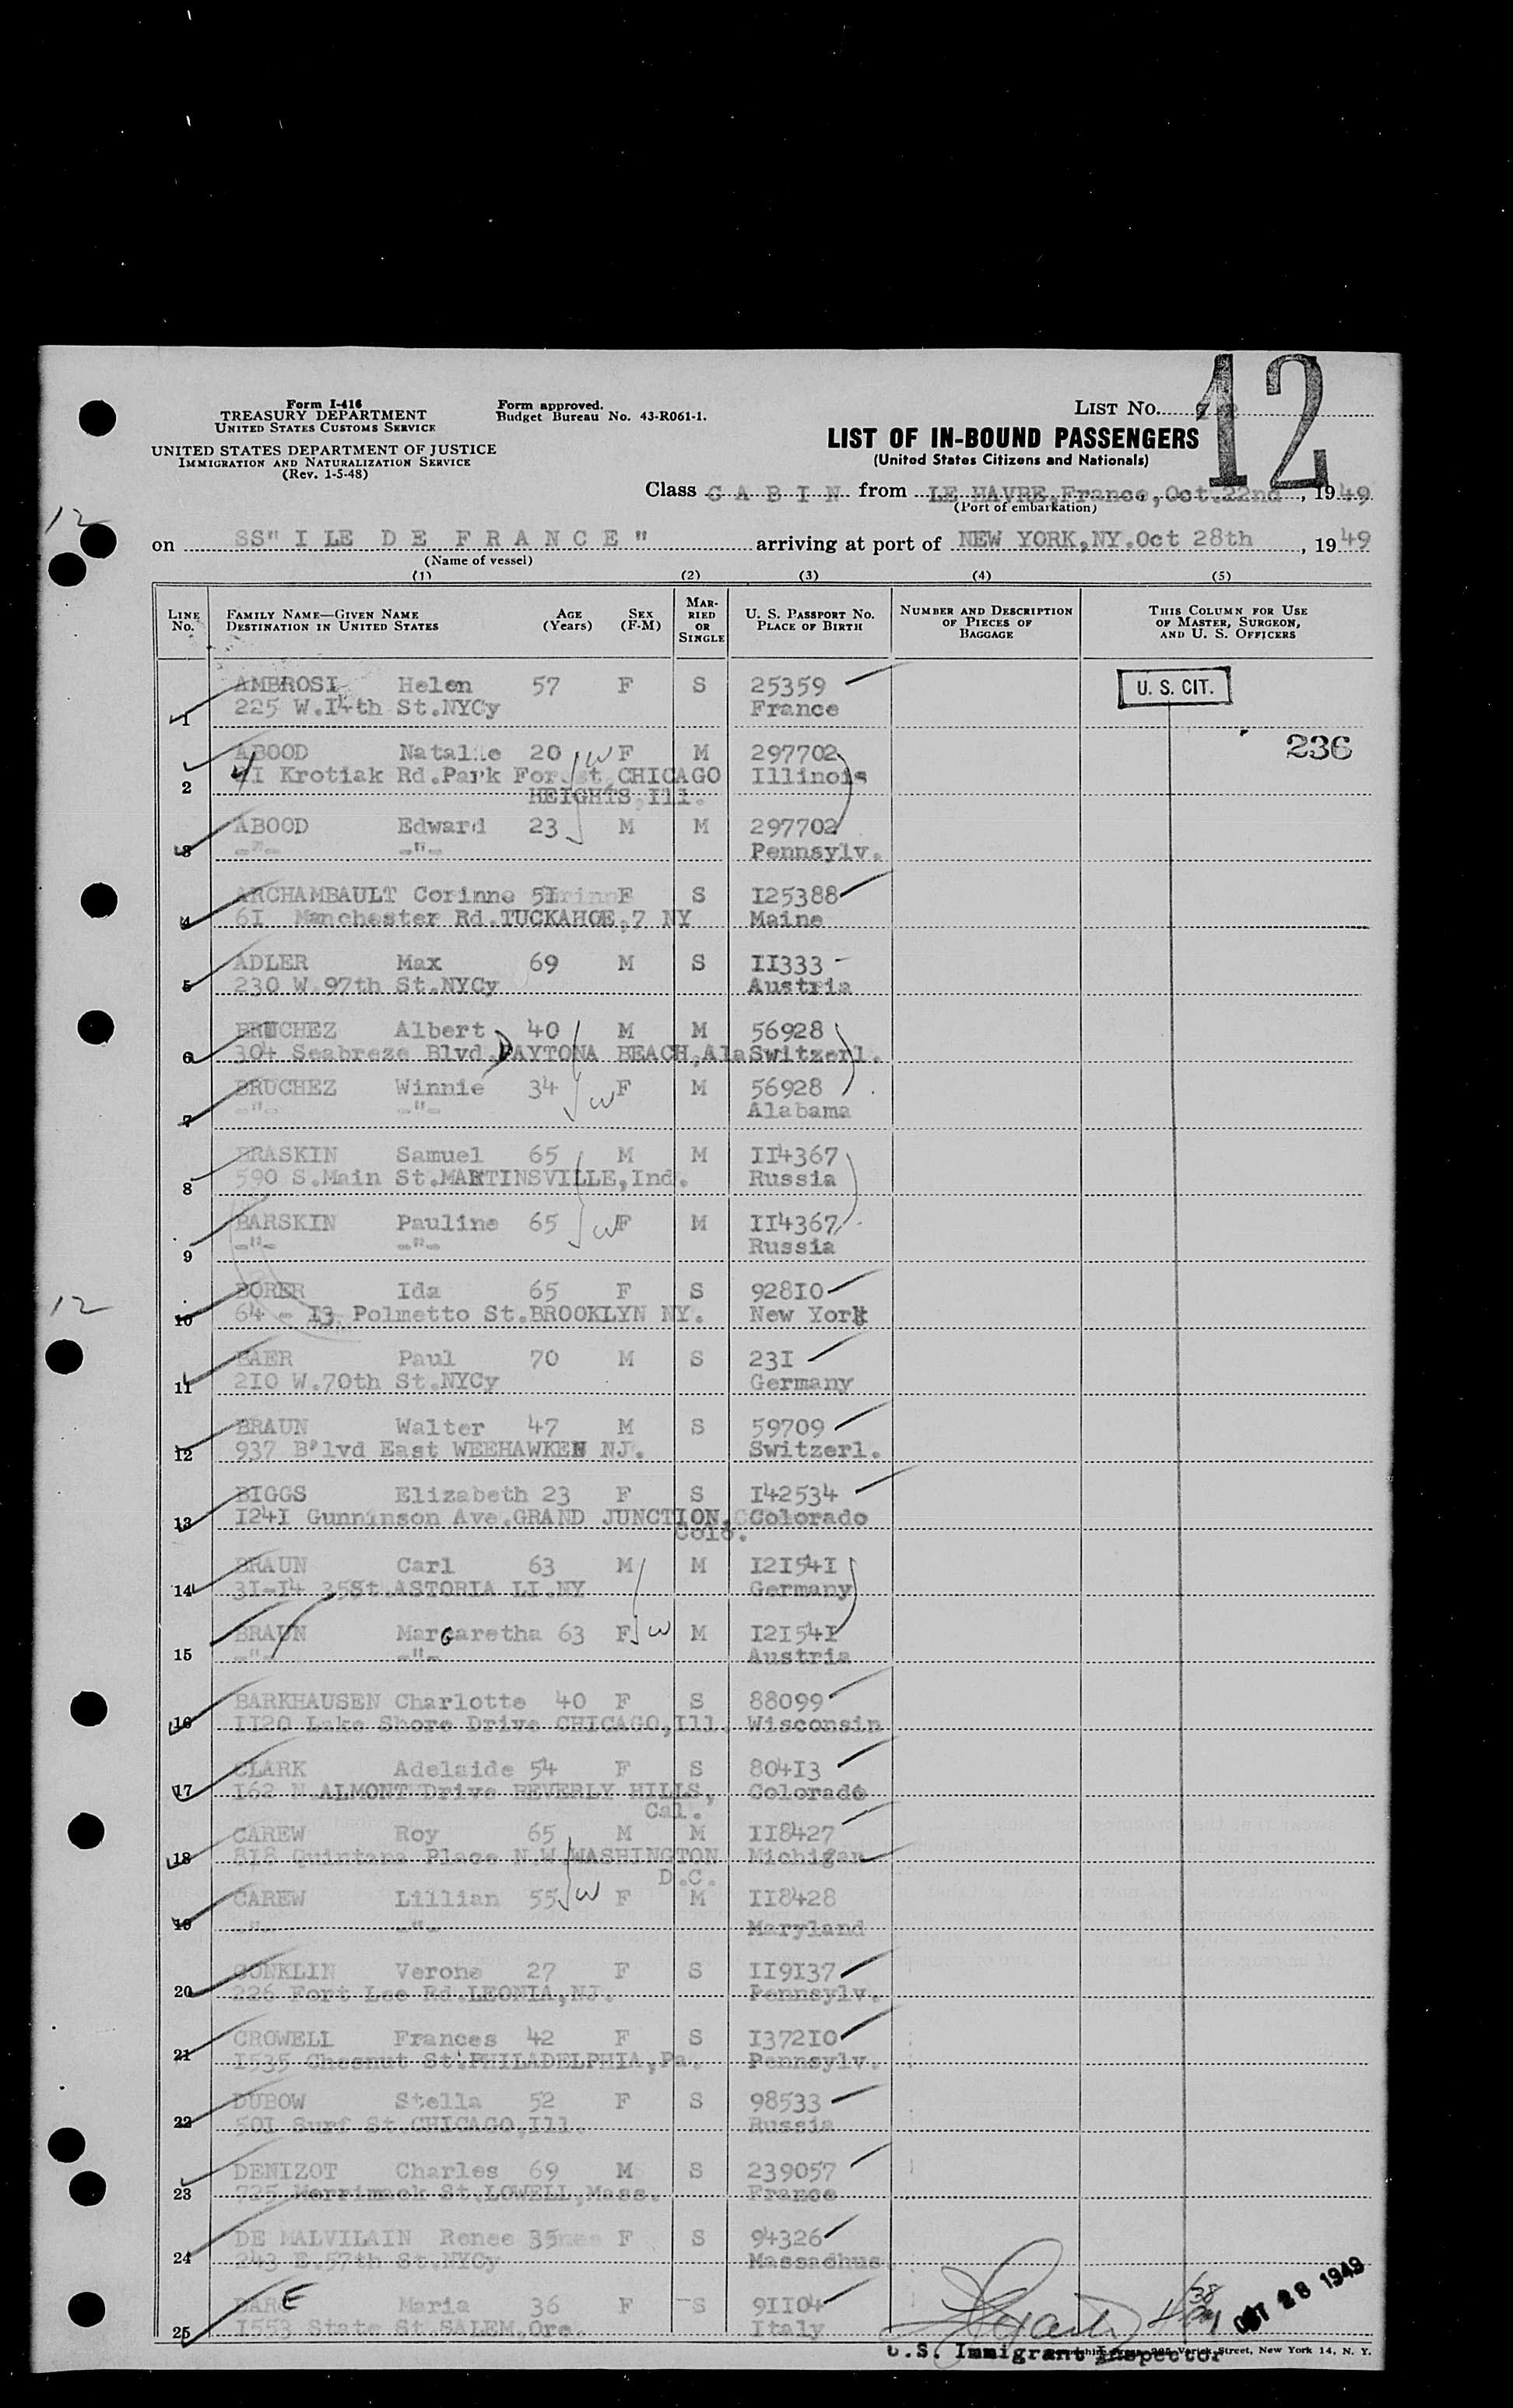 12
Form I-416
TREASURY DEPARTMENT
UNITED STATES CUSTOMS SERVICE
UNITED STATES DEPARTMENT OF JUSTICE
IMMIGRATION AND NATURALIZATION SERVICE
(Rev. 1-5-48)
Form approved.
Budget Bureau No. 43-R061-1.
LIST NO.
LIST OF IN-BOUND PASSENGERS
(United States Citizens and Nationals)
Class C A B I N from LE HAVRE,France,Oct.22nd, 1949
(Port of embarkation)
12
on SS" I LE D E F R A N C E " arriving at port of NEW YORK,NY.Oct 28th, 1949
(Name of vessel)
(1) (2) (3) (4) (5)
LINE No. FAMILY NAME—GIVEN NAME DESTINATION IN UNITED STATES AGE (Years) SEX (F-M) MARRIED OR SINGLE U. S. PASSPORT NO. PLACE OF BIRTH NUMBER AND DESCRIPTION OF PIECES OF BAGGAGE THIS COLUMN FOR USE OF MASTER, SURGEON, AND U. S. OFFICERS
AMBROSI Helen 57 F S 25359 U. S. CIT.
1 225 W.I4th St.NYCy France
ABOOD Natalie 20 W F M 297702 236
2 41 Krotiak Rd.Park Forest CHICAGO Illinois
HEIGHTS,Ill.
ABOOD Edward 23 M M 297702
3 -"- -"- Pennsylv.
ARCHAMBAULT Corinne 5I F S I25388
4 6I Manchester Rd.TUCKAHOE,7 NY Maine
ADLER Max 69 M S II333
5 230 W.97th St.NYCy Austria
BRUCHEZ Albert 40 M M 56928
6 304 Seabreze Blvd.DAYTONA BEACH,Ala Switzerl.
BRUCHEZ Winnie 34 W F M 56928
7 -"- -"- Alabama
BRASKIN Samuel 65 M M II4367
8 590 S.Main St.MARTINSVILLE,Ind. Russia
BARSKIN Pauline 65 W F M II4367
9 -"- -"- Russia
12
BORER Ida 65 F S 928I0
10 64 - I3 Polmetto St.BROOKLYN NY. New York
BAER Paul 70 M S 23I
11 2I0 W.70th St.NYCy Germany
BRAUN Walter 47 M S 59709
12 937 B'lvd East WEEHAWKEN NJ. Switzerl.
BIGGS Elizabeth 23 F S I42534
13 I24I Gunninson Ave.GRAND JUNCTION, Colorado
Colo.
BRAUN Carl 63 M M I2I54I
14 3I-I4 35St.ASTORIA LI.NY Germany
BRAUN Margaretha 63 F W M I2I54I
15 -"- -"- Austria
BARKHAUSEN Charlotte 40 F S 88099
16 II20 Lake Shore Drive CHICAGO,Ill. Wisconsin
CLARK Adelaide 54 F S 804I3
17 I62 N.ALMONT Drive BEVERLY HILLS, Colorado
Cal.
CAREW Roy 65 M M II8427
18 8I8 Quintana Place N.W.WASHINGTON Michigan
D.C.
CAREW Lillian 55 W F M II8428
19 -"- -"- Maryland
CONKLIN Verone 27 F S II9I37
20 226 Fort Lee Rd.LEONIA,NJ. Pennsylv.
CROWELL Frances 42 F S I372I0
21 I535 Chesnut St.PHILADELPHIA,Pa. Pennsylv.
DUBOW Stella 52 F S 98533
22 50I Surf St.CHICAGO,Ill. Russia
DENIZOT Charles 69 M S 239057
23 725 Merrimack St.LOWELL,Mass. France
DE MALVILAIN Renee 35 F S 94326
24 243 E.57th St.NYCy Massadhus.
DARE Maria 36 F S 9II04
25 I553 State St.SALEM,Ore. Italy
OCT 28 1949
U.S. Immigrant Inspector
Varick Street, New York 14, N. Y.